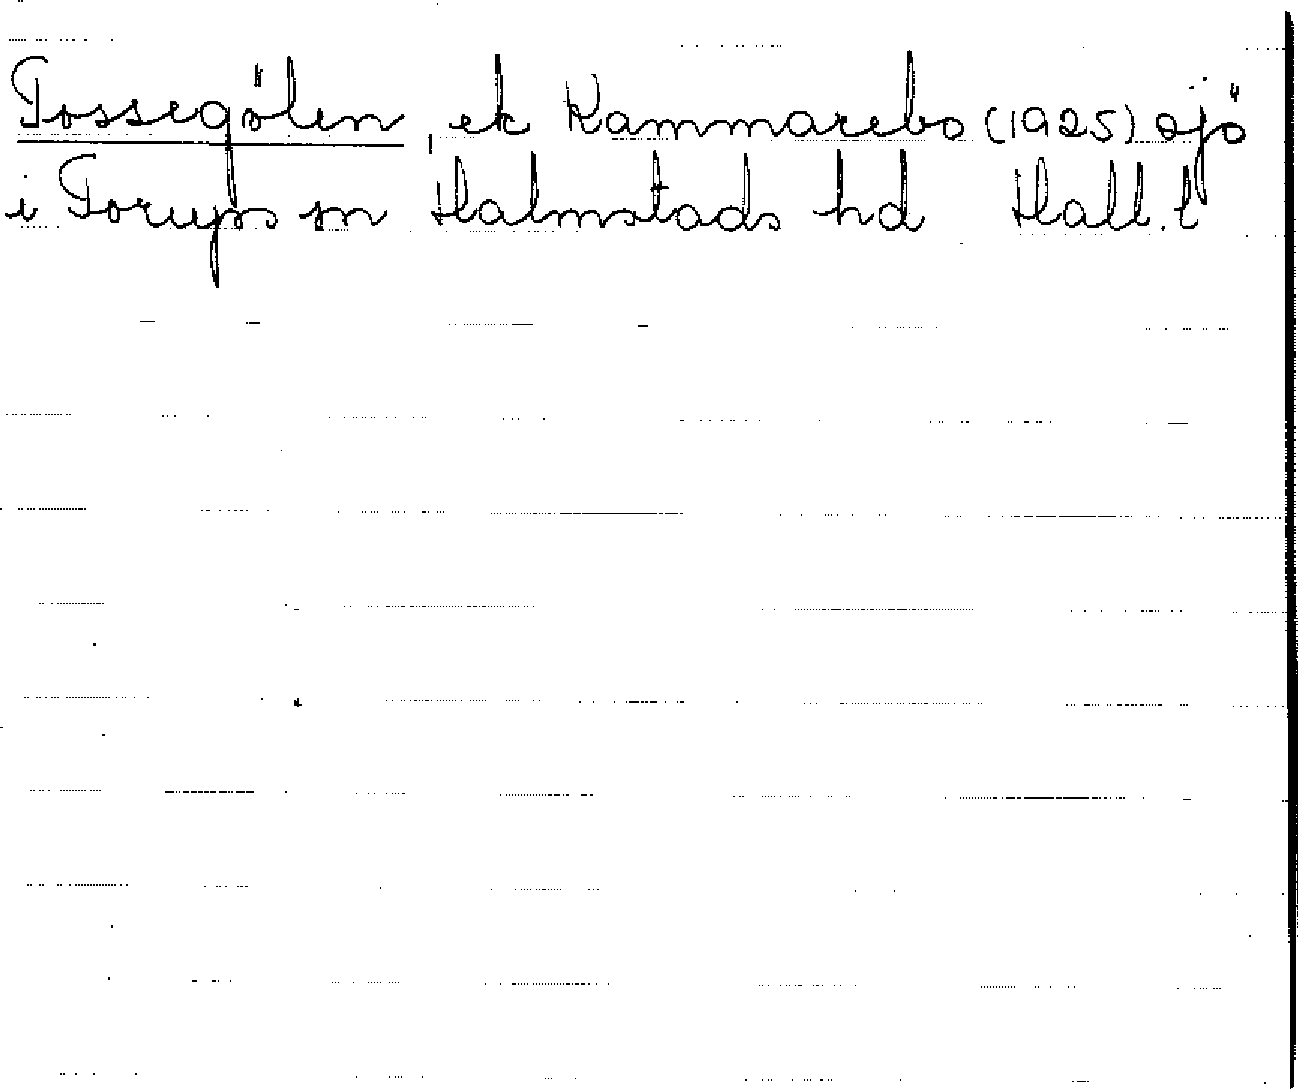 Tossegölen, ek Kammarebo (1925) sjö
i Torups sn Halmstads hd Hall. l